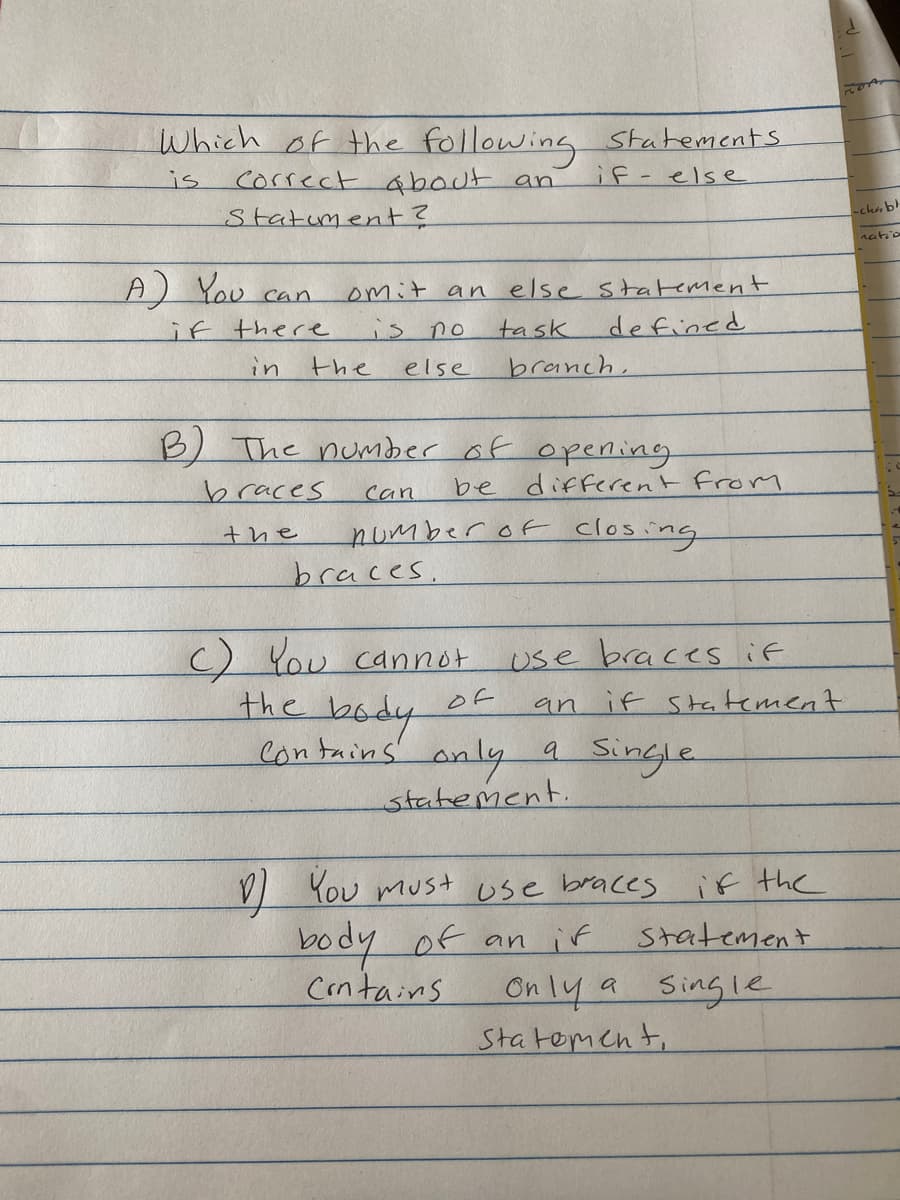 Which of the following statements
is correct about an if - else
statement?
A) You can omit an else statement
if there is no task defined
in the else branch.
B) The number of opening
braces can be different from
the number of closing
braces.
C) You cannot use braces if
the body of an if statement
contains only a single
statement.
D) You must use braces if the
body of an if statement
contains only a single
statement.